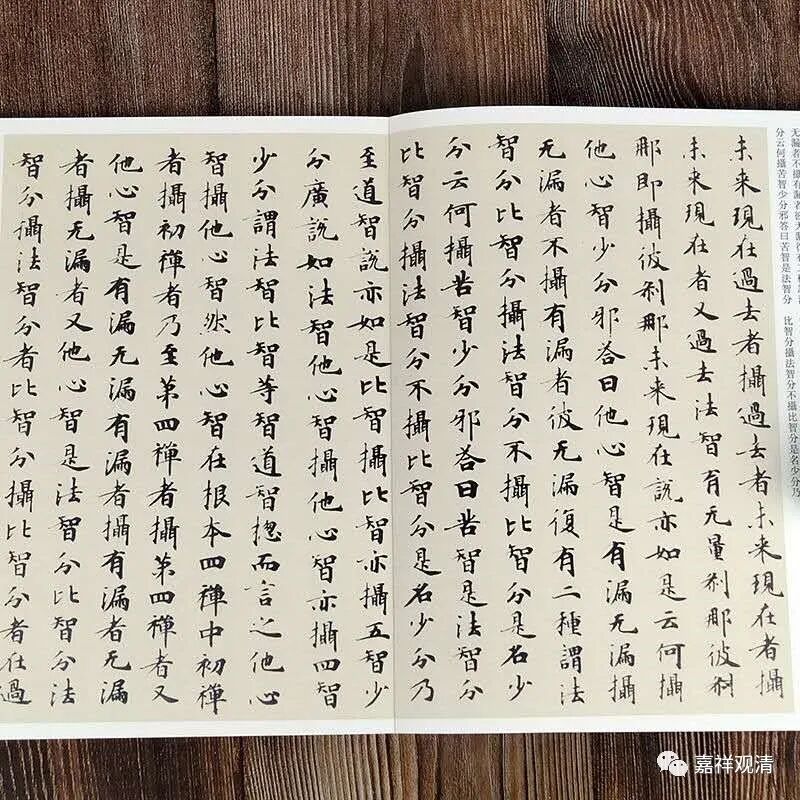 分云何攝苦智少分邪答曰苦智是法智分 比智分攝法智分不攝比智分是名少分乃
未来現在過去者攝過去者未来現在者攝
未来現在者又過去法智有无量刹那彼刹
那即攝彼刹那未来現在說亦如是云何攝
他心智少分邪荅曰他心智是有漏无漏攝
无漏者不攝有漏者彼无漏復有二種謂法
智分比智分攝法智分不攝比智分是名少
分云何攝苦智少分邪荅曰苦智是法智分
比智分攝法智分不攝比智分是名少分乃
至道智說亦如是比智攝比智亦攝五智少
分廣說如法智他心智攝他心智亦攝四智
少分謂法智比智等智道智揔而言之他心
智攝他心智然他心智在根本四禪中初禪
者攝初禪者乃至第四禪者攝第四禪者又
他心智是有漏无漏有漏者攝有漏者无漏
者攝无漏者又他心智是法智分比智分法
智分攝法智分者比智分攝比智分者在過
嘉祥观清